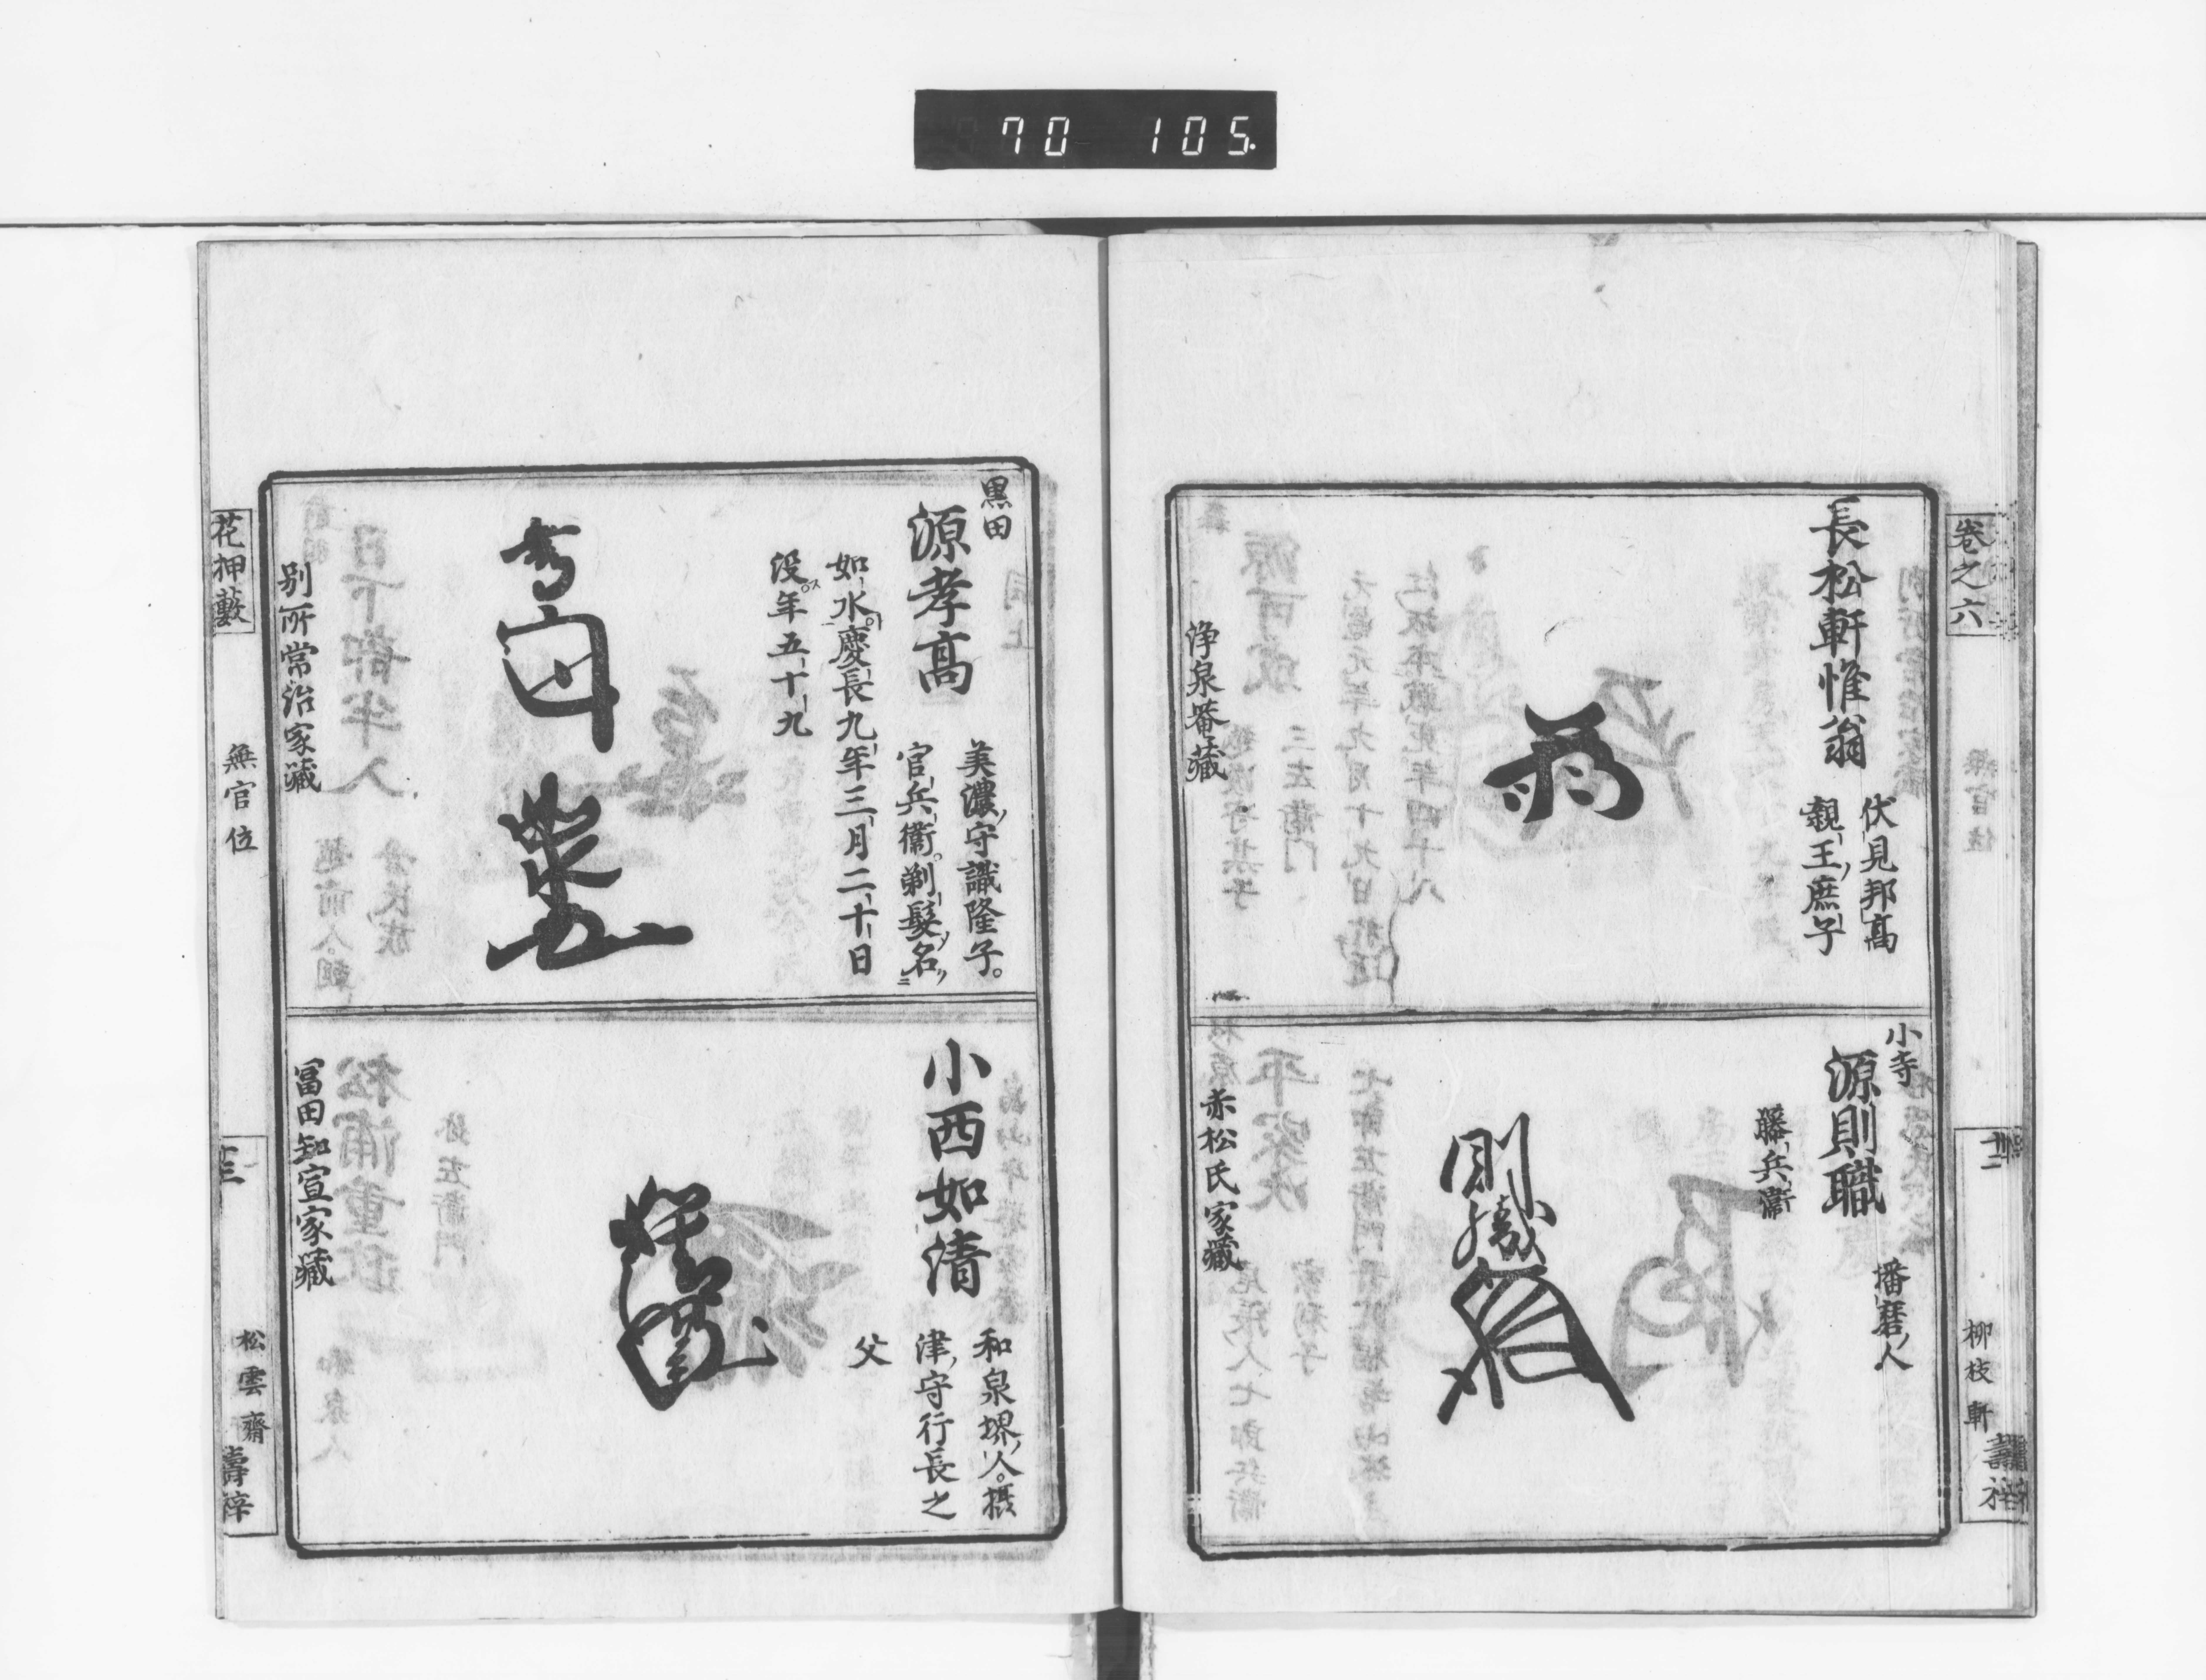 70 105.
卷之六
無官位
十二
柳枝軒
壽梓
長松軒惟翁
伏見邦髙
親王庶子
浄泉菴藏
小寺
源則職
播磨人
藤兵衞
則職
赤松氏家藏
黒田
源孝髙
美濃守識隆子。
官兵衞。剃髮名
如水慶長九年三月二十日
没年五十九
別所常治家藏
小西如清
和泉堺人。摂
津守行長之
父
冨田知宣家藏
花押藪
無官位
十三
松雲齋
壽梓